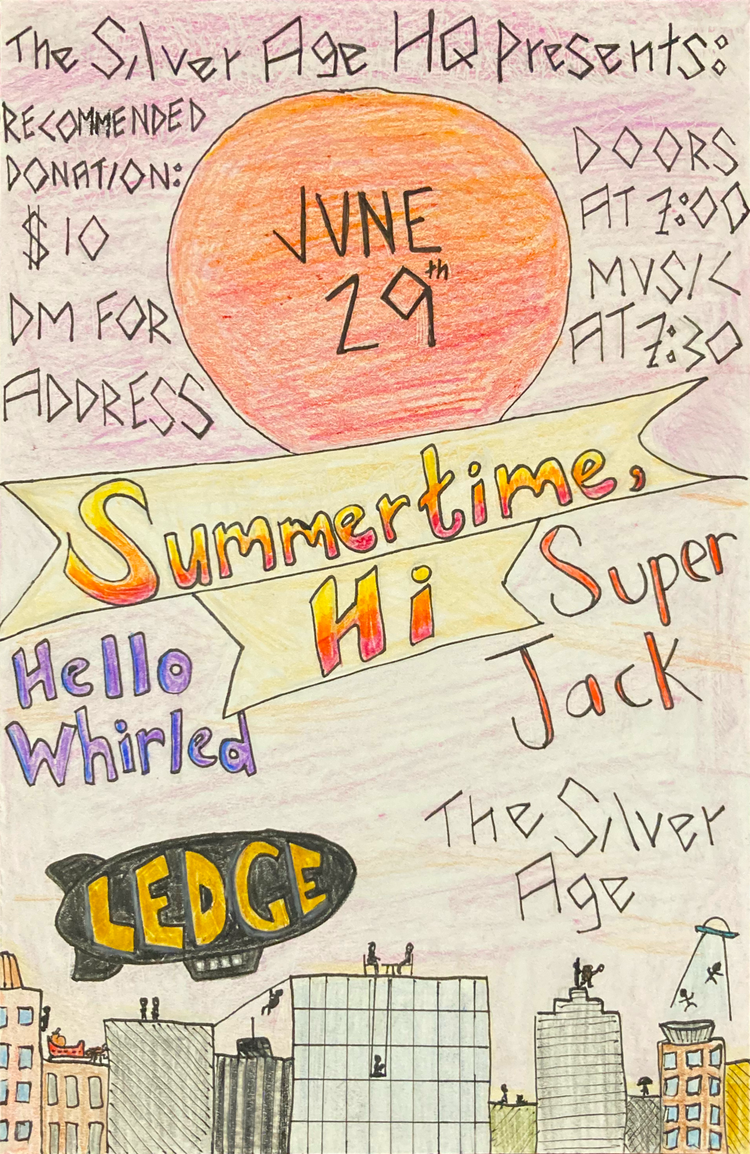 The Silver Age HQ Presents:
RECOMMENDED
DONATION:
$10
DM FOR
ADDRESS
JUNE
29th
DOORS
AT 7:00
MUSIC
AT 7:30
Summertime,
Hi
Super
Jack
Hello
Whirled
The Silver
Age
LEDGE